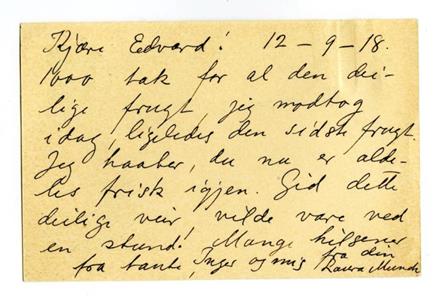 Kjære Edvard! 12-9-18.
1000 tak for al den dei-
lige frugt, jeg modtog
idag, ligeledes den sidste frugt.
Jeg haaber, du nu er alde-
les frisk igjen. Gid dette
deilige veir vilde vare ved
en stund! Mange hilsener
fra tante, Inger og mig fra din
Laura Munch